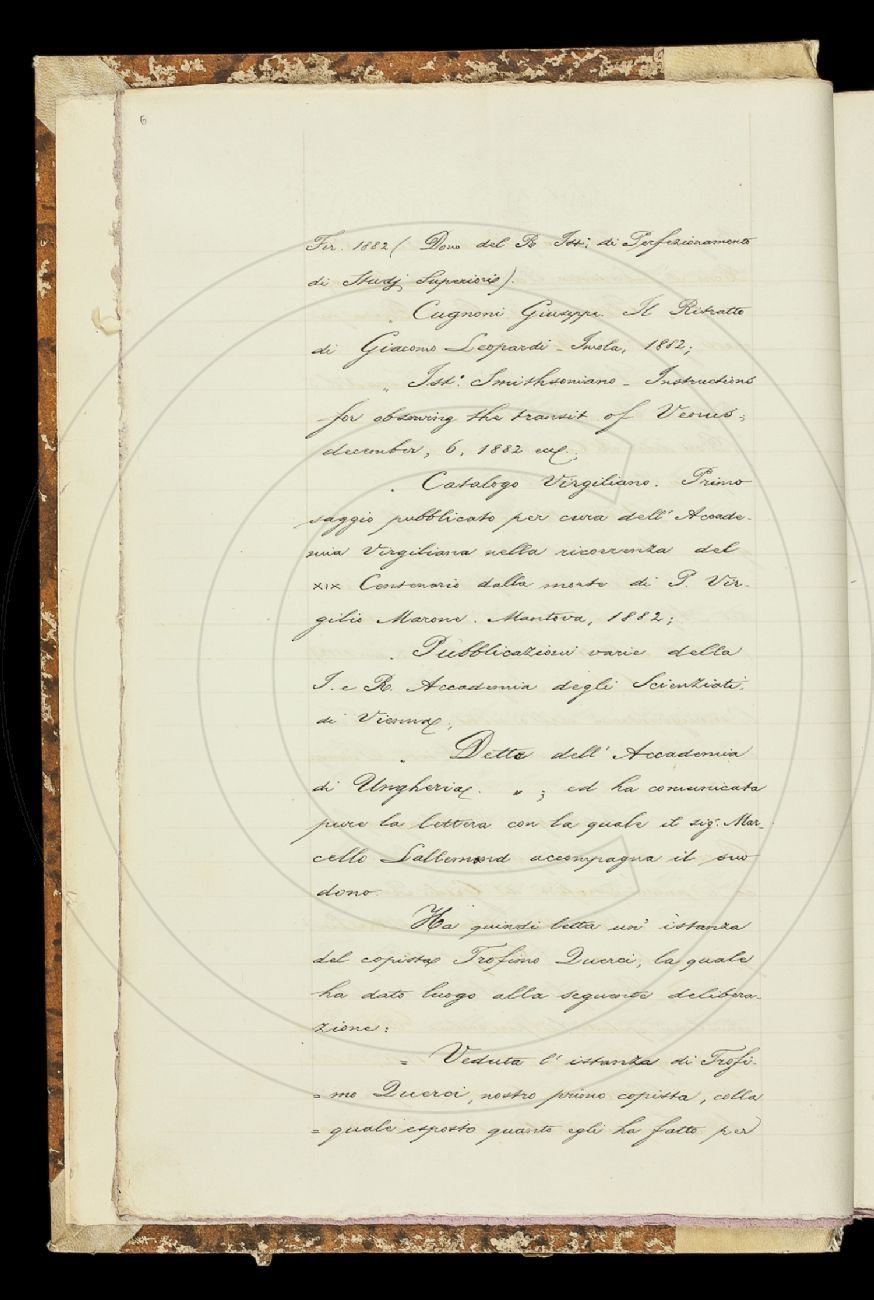 6
Fir. 1882 (Dono del R. Ist: di Perfezionamento
di Studj Superiori).
„ Cugnoni Giuseppe. Il Ritratto
di Giacomo Leopardi - Imola, 1882;
„ Ist.º Smithsoniano - Instructions
for observing the transit of Venus;
december, 6, 1882
„ Catalogo Virgiliano. Primo
saggio pubblicato per cura dell' Accade-
mia Virgiliana nella ricorrenza del
XIX Centenario dalla morte di P. Vir-
gilio Marone. Mantova, 1882;
„ Pubblicazioni varie della
I. e R. Accademia degli Scienziati
di Vienna,
„ Dette dell' Accademia
di Ungheria. „ ; ed ha comunicata
pure la lettera con la quale il sig. Mar-
cello Lallemand accompagna il suo
dono.
Ha quindi letta un' istanza
del copista Trofimo Querci, la quale
ha dato luogo alla seguente delibera-
zione:
= Veduta l' istanza di Trofi-
= mo Querci, nostro primo copista, colla
= quale esposto quanto egli ha fatto per